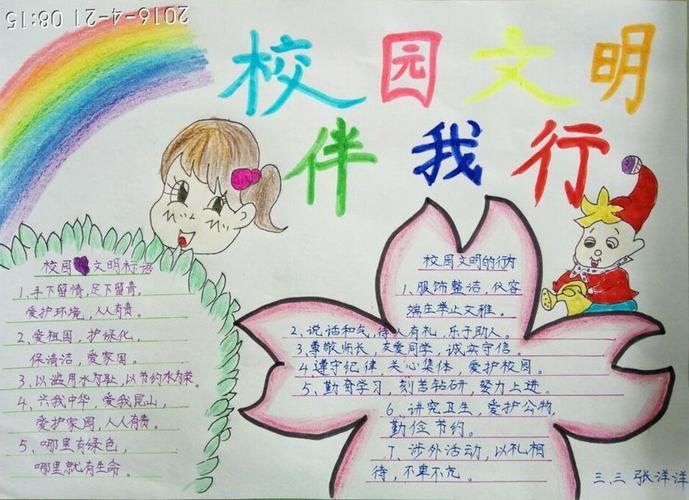 2016-4-21 08:15
校园文明
伴我行
校园文明标语
1、手下留情,足下留青,
爱护环境,人人有责。
2、爱祖国,护绿化,
保清洁,爱家园。
3、以滥用水为耻,以节约水为荣。
4、兴我中华,爱我昆山,
爱护家园,人人有责。
5、哪里有绿色,
哪里就有生命。
校园文明的行为
1、服饰整洁,仪容
端庄举止文雅。
2、说话和气,待人有礼,乐于助人。
3、尊敬师长,友爱同学,诚实守信。
4、遵守纪律,关心集体,爱护校园。
5、勤奋学习,刻苦钻研,努力上进。
6、讲究卫生,爱护公物,
勤俭节约。
7、涉外活动,以礼相
待,不卑不亢。
三.三 张洋洋